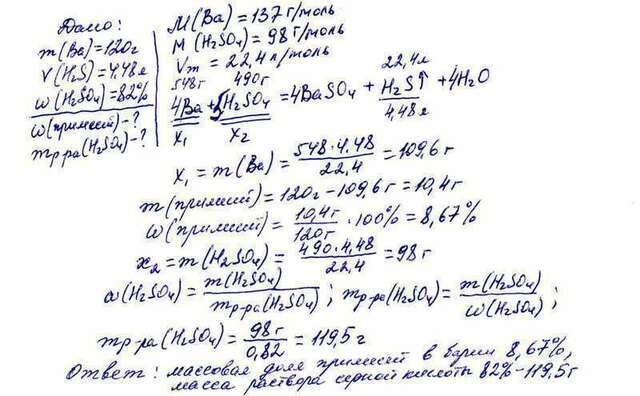 Дано:
m(Ba)=120г
V(H₂S)=4.48л
ω(H₂SO₄)=82%
ω(примесей)-?
mр-ра(H₂SO₄)-?
M(Ba)=137г/моль
M(H₂SO₄)=98г/моль
Vm=22,4л/моль
548г 490г 22,4л
4Ba+5H₂SO₄=4BaSO₄+H₂S↑+4H₂O
x₁ x₂ 4,48л
x₁=m(Ba)=548·4.48/22,4=109,6г
m(примесей)=120г-109,6г=10,4г
ω(примесей)=10,4г/120г·100%=8,67%
x₂=m(H₂SO₄)=490·4,48/22,4=98г
ω(H₂SO₄)=m(H₂SO₄)/mр-ра(H₂SO₄); mр-ра(H₂SO₄)=m(H₂SO₄)/ω(H₂SO₄);
mр-ра(H₂SO₄)=98г/0,82=119,5г
Ответ: массовая доля примесей в барии 8,67%,
масса раствора серной кислоты 82%-119,5г